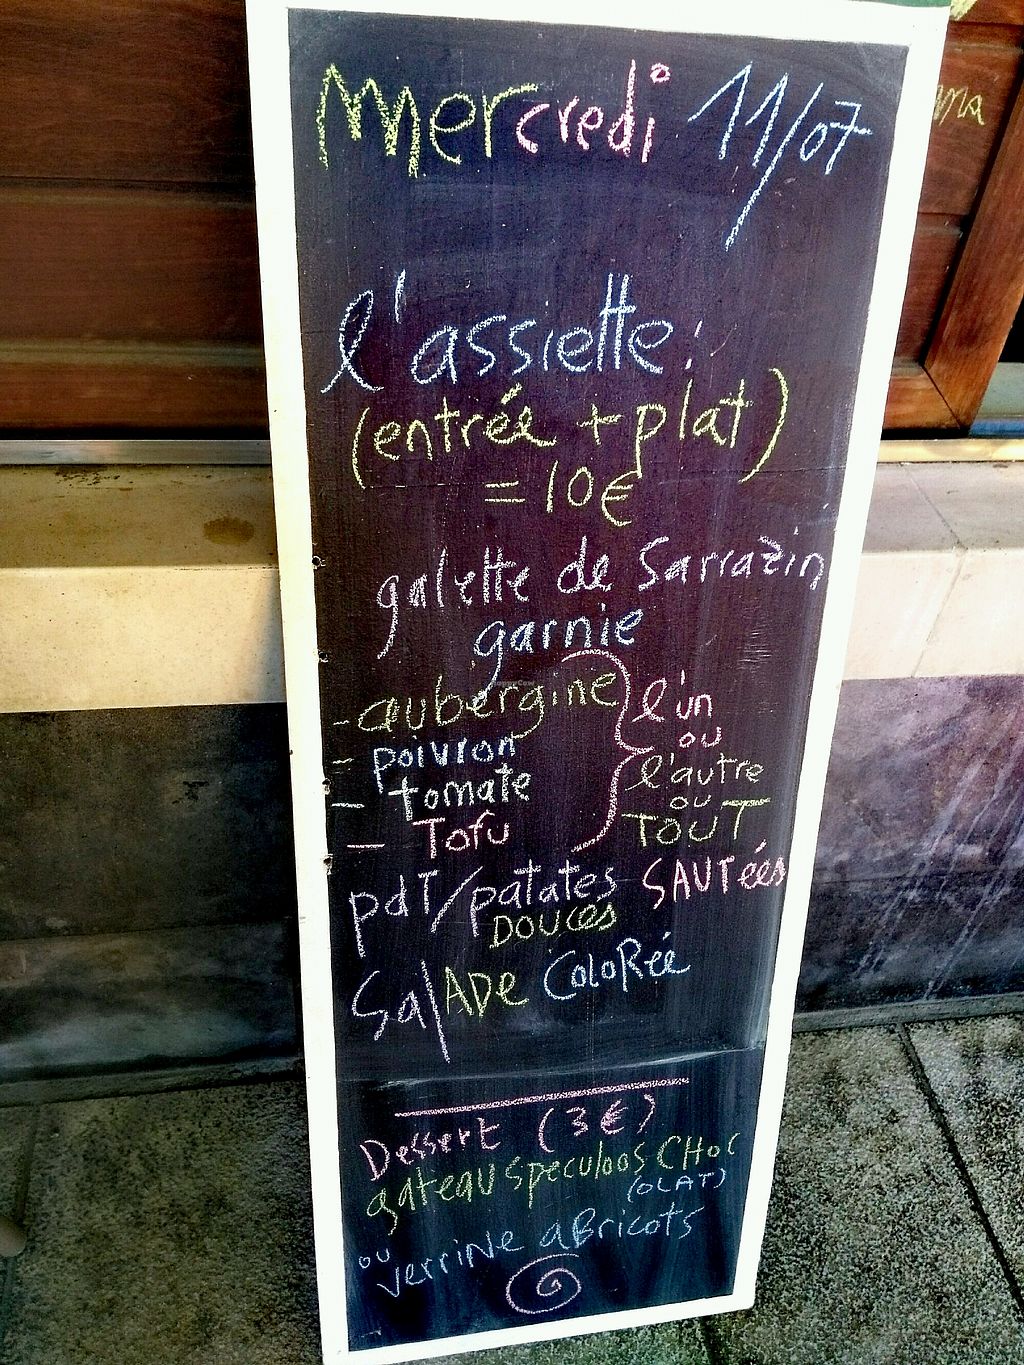 Mercredi 11/07
l'assiette:
(entrée + plat)
= 10€
galette de Sarrazin
garnie
- aubergine
- poivron
- tomate
- Tofu
l'un
ou
l'autre
ou
TOUT
pdT/patates SAUTéés
DOUCES
SalADe ColoRée
Dessert (3€)
gateau speculoos CHoc
(OLAT)
ou verrine aBricots